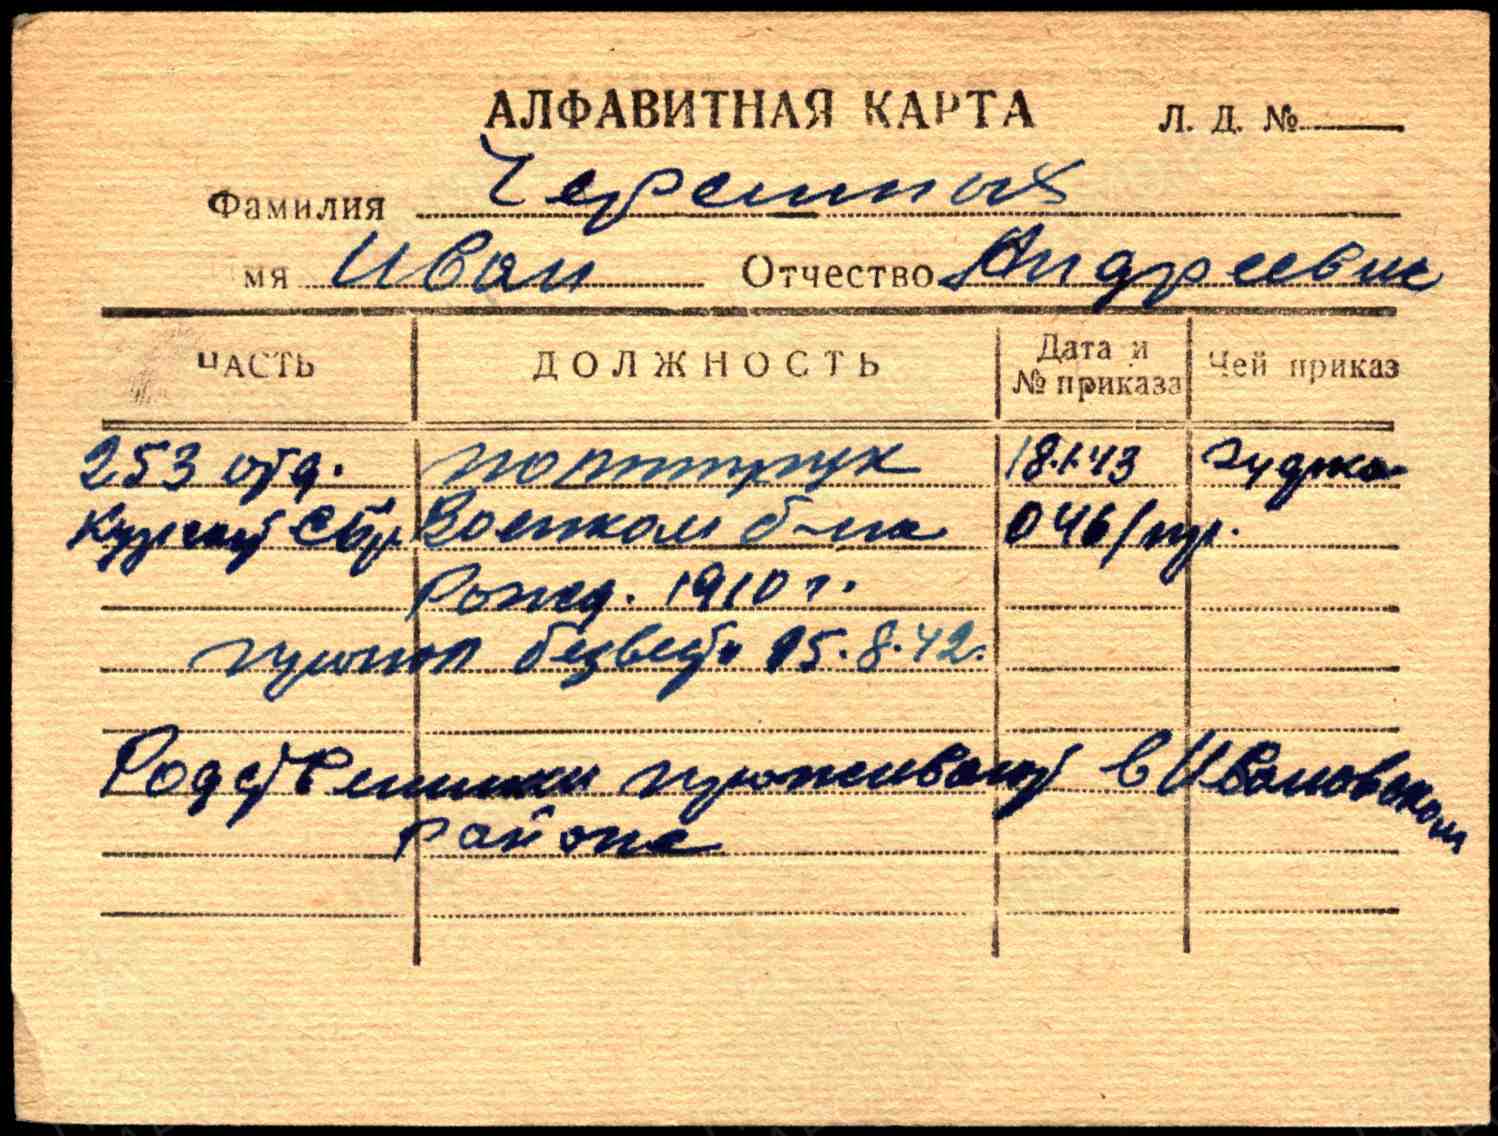 АЛФАВИТНАЯ КАРТА Л. Д. №
Фамилия Черемных
мя Иван Отчество Андреевич
ЧАСТЬ ДОЛЖНОСТЬ Дата и № приказа Чей приказ
253 отд. политрук 18.1.43
Курский Сбр Военком б-на 046/пр.
Рожд. 1910 г.
пропал безвест 15.8.42.
Родственники проживают в Ивановском
районе